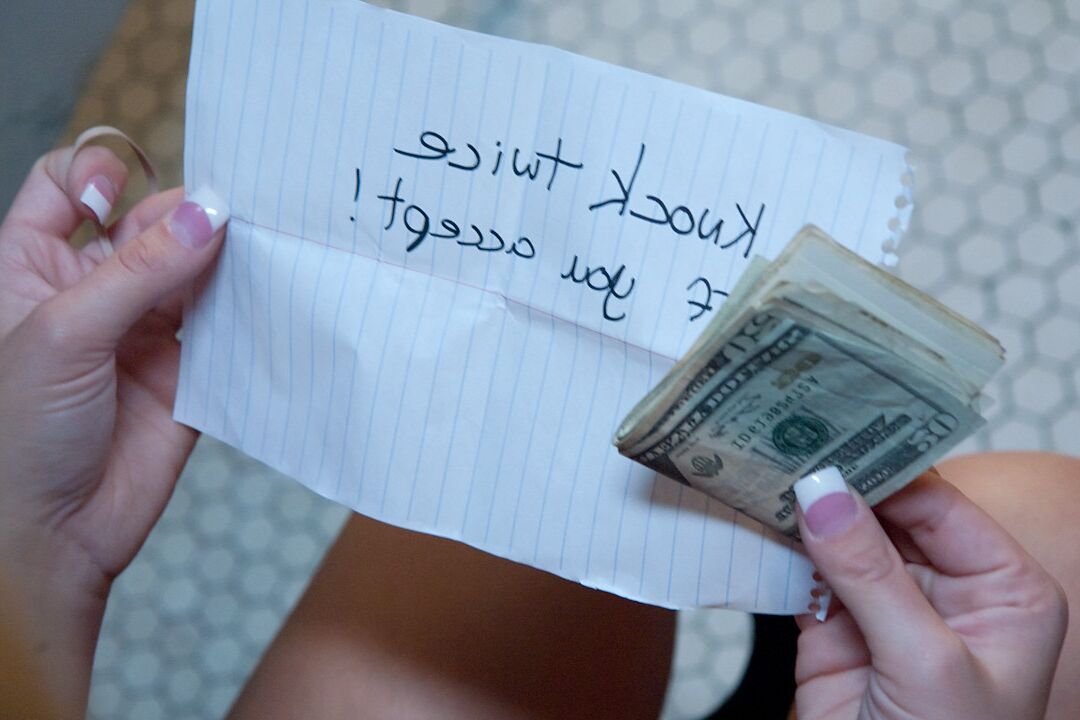 Knock twice
If you accept!
20